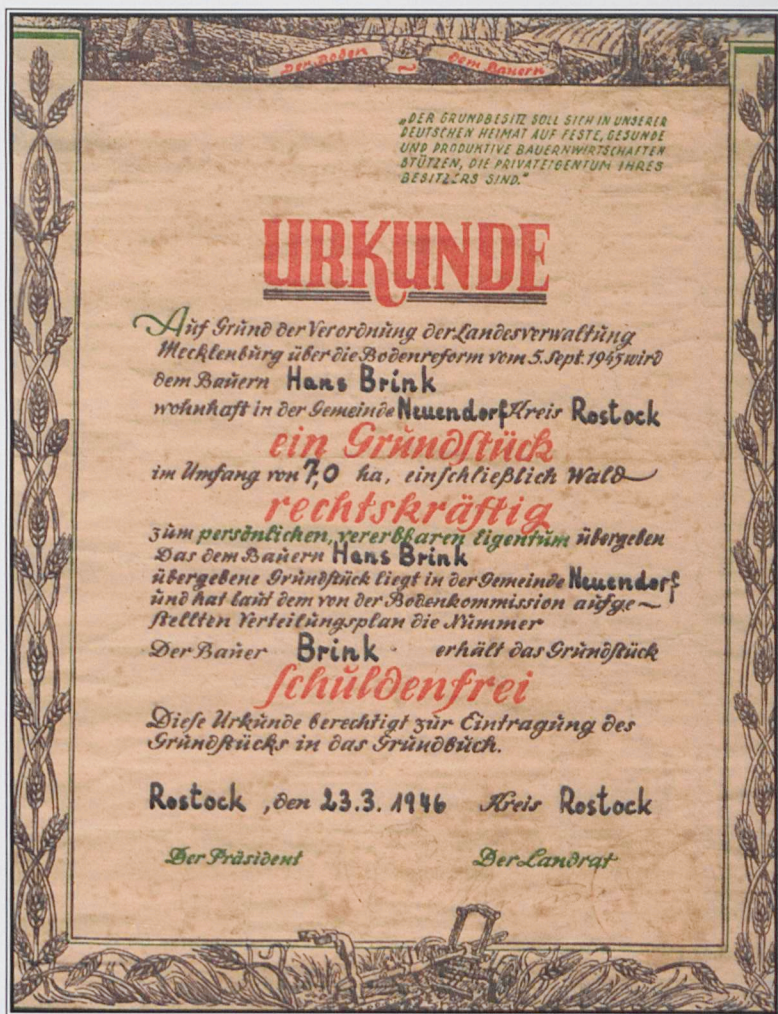 Der Boden ~ dem Bauern
„DER GRUNDBESITZ SOLL SICH IN UNSERER
DEUTSCHEN HEIMAT AUF FESTE, GESUNDE
UND PRODUKTIVE BAUERNWIRTSCHAFTEN
STÜTZEN, DIE PRIVATEIGENTUM IHRES
BESITZERS SIND."
URKUNDE
Auf Grund der Verordnung der Landesverwaltung
Mecklenburg über die Bodenreform vom 5. Sept. 1945 wird
dem Bauern Hans Brink
wohnhaft in der Gemeinde Neuendorf Kreis Rostock
ein Grundstück
im Umfang von 7,0 ha, einschließlich Wald
rechtskräftig
zum persönlichen, vererbbaren Eigentum übergeben
Das dem Bauern Hans Brink
übergebene Grundstück liegt in der Gemeinde Neuendorf
und hat laut dem von der Bodenkommission aufge~
stellten Verteilungsplan die Nummer
Der Bauer Brink erhält das Grundstück
schuldenfrei
Diese Urkunde berechtigt zur Eintragung des
Grundstücks in das Grundbuch.
Rostock, den 23.3. 1946 Kreis Rostock
Der Präsident Der Landrat